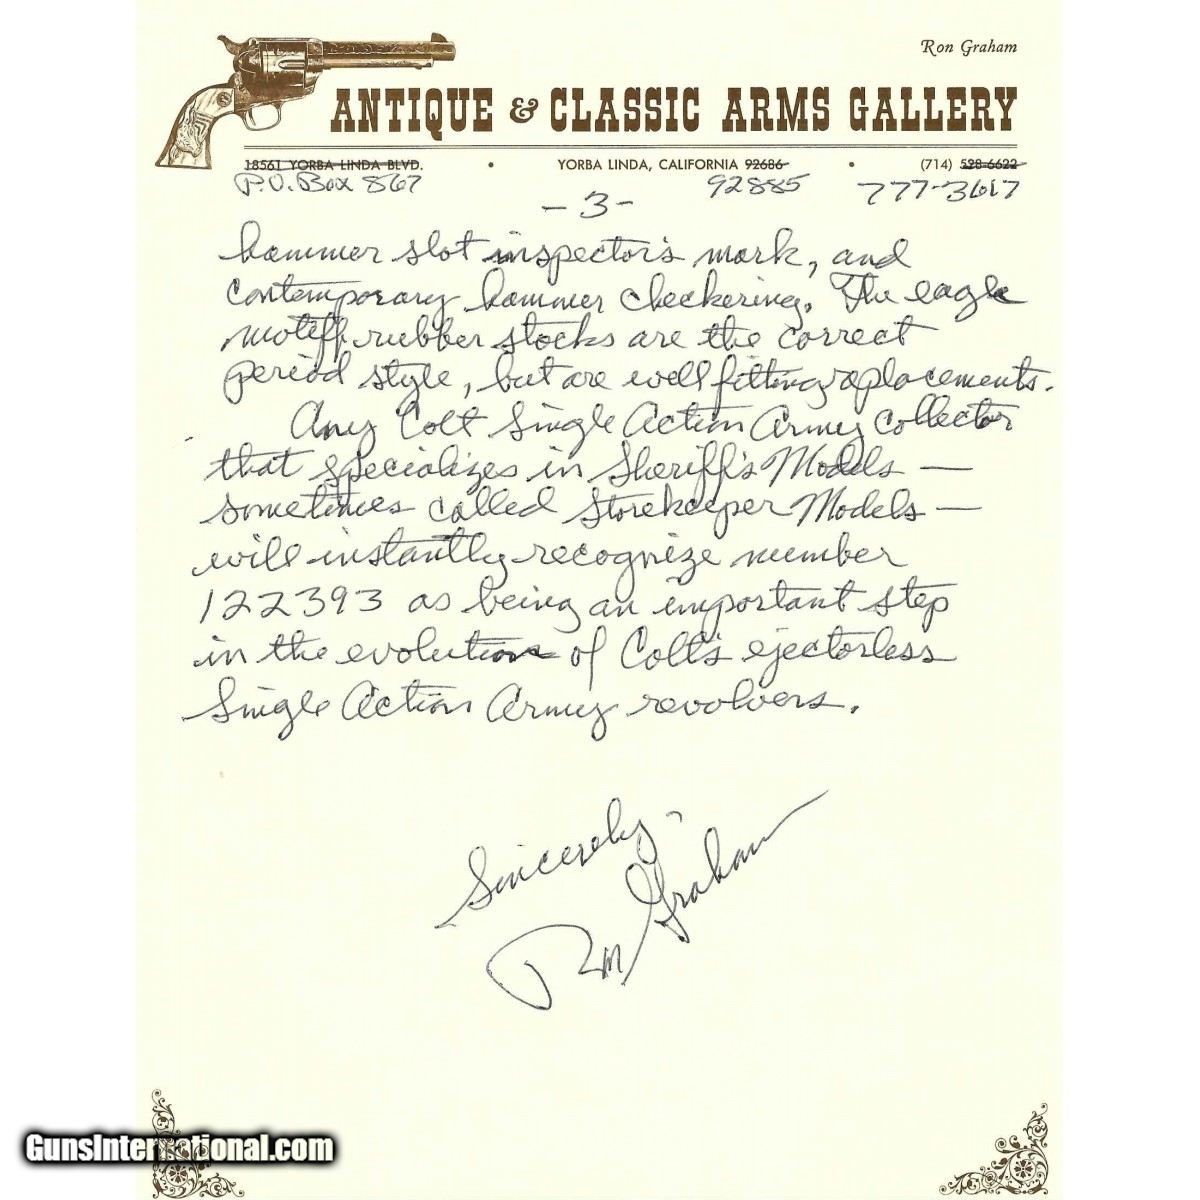 Ron Graham
ANTIQUE & CLASSIC ARMS GALLERY
18561 YORBA LINDA BLVD. • YORBA LINDA, CALIFORNIA 92686 • (714) 528-6622
P.O. Box 867 92885 777-3617
- 3 -
hammer slot inspector's mark, and
contemporary hammer checkering. The eagle
motiff rubber stocks are the correct
period style, but are well fitting replacements.
Any Colt Single Action Army collector
that specializes in Sheriff's Models —
sometimes called Storekeeper Models —
will instantly recognize number
122393 as being an important step
in the evolution of Colt's ejectorless
Single Action Army revolvers.
Sincerely,
Ron Graham
GunsInternational.com